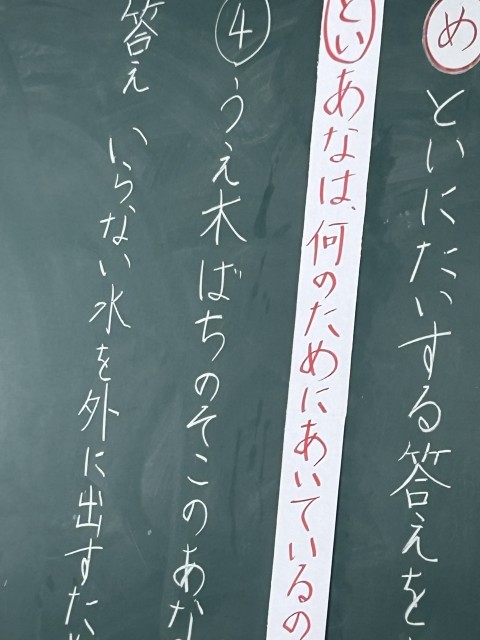 め といにたいする答えを
とい あなは、何のためにあいているの
④ うえ木ばちのそこのあな
答え いらない水を外に出すた